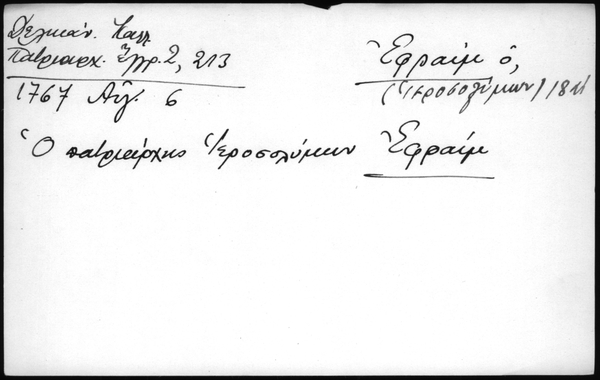 Δελικάν. Καλλ
Πατριαρχ. Ἔγγρ. 2, 213
1767 Αὔγ. 6
Ἐφραὶμ ὁ,
(Ἱεροσολύμων)
Ὁ πατριάρχης Ἱεροσολύμων Ἐφραὶμ